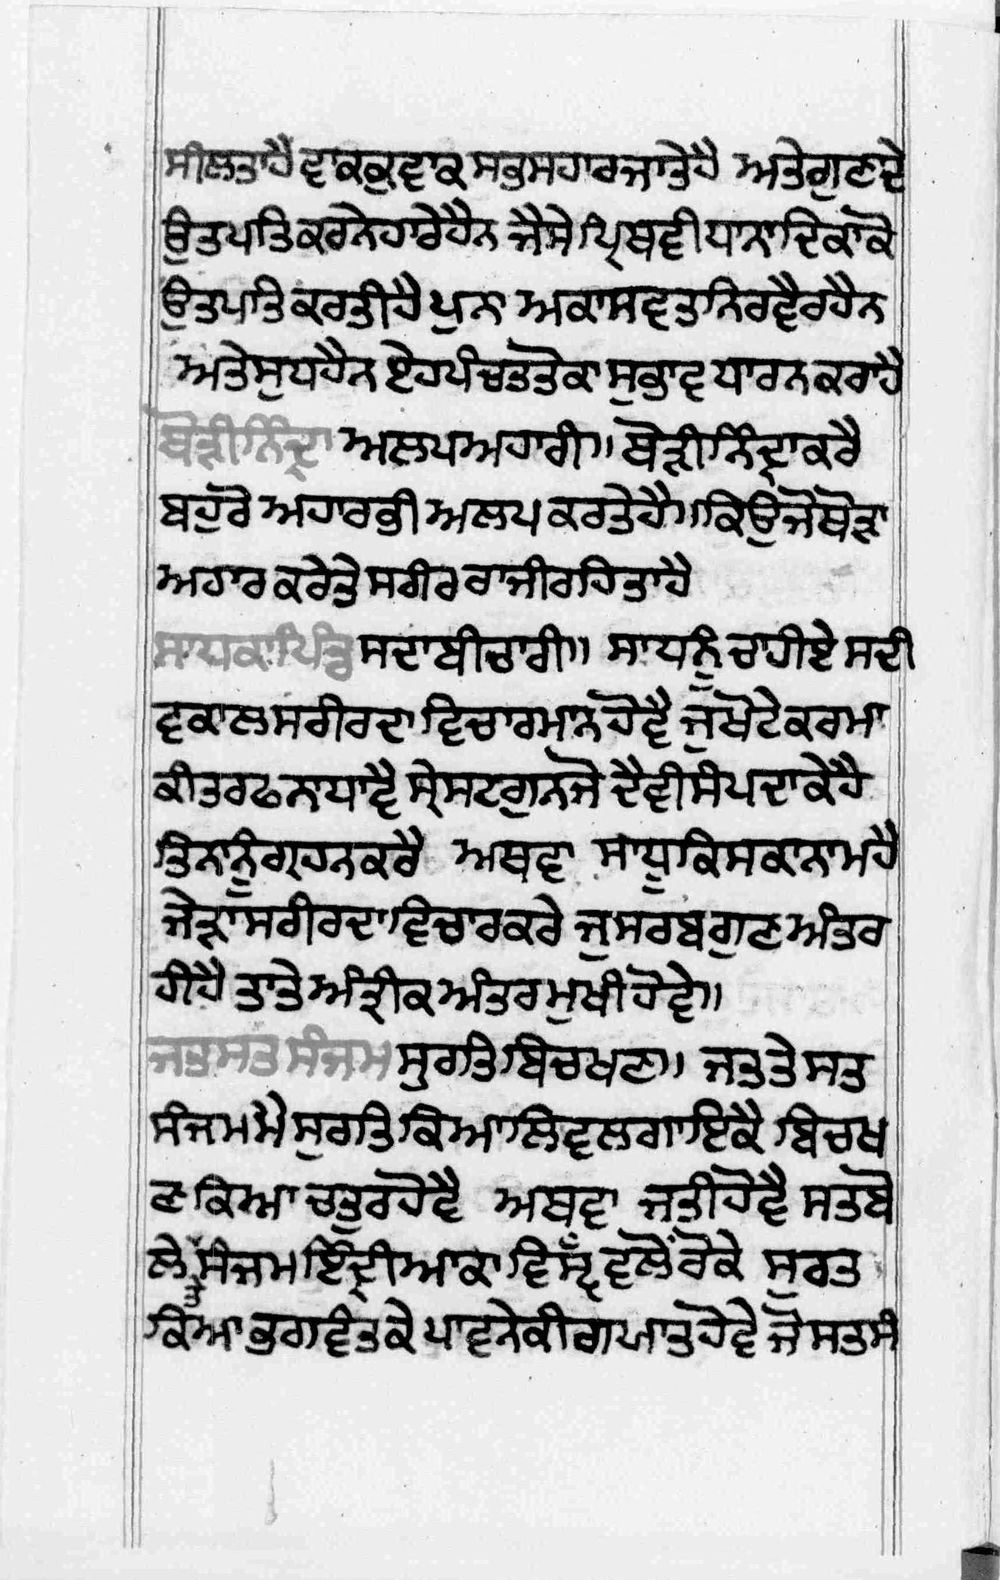 ਸੀਲਤਾਹੈ ਵਾਕਕੁਵਾਕ ਸਭਸਹਾਰਜਾਤੇਹੈ ਅਤੇਗੁਣਦੇ
ਉਤਪਤਿਕਰਨੇਹਾਰੇਹੈਨ ਜੈਸੇ ਪ੍ਰਿਥਵੀ ਧਾਨਾਦਿਕਾਕੋ
ਉਤਪਾਤਿ ਕਰਤੀਹੈ ਪੁਨਾ ਅਕਾਸਵਤ ਨਿਰਵੈਰਹੈਨ
ਅਤੇ ਸੁਧਹੈਨ ਏਹਪੰਚਤਤੋਕਾ ਸੁਭਾਵ ਧਾਰਨਕਰਾਹੈ
ਥੋੜੀਨਿੰਦ੍ਰਾ ਅਲਪਅਹਾਰੀ॥ ਥੋੜੀਨਿੰਦ੍ਰਾਕਰੈ
ਬਹੁਰੋ ਅਹਾਰਭੀ ਅਲਪ ਕਰਤੇਹੈ॥ਕਿਉਜੋਥੋੜਾ
ਅਹਾਰ ਕਰੇਤੇ ਸਰੀਰ ਰਾਜੀਰਹਿਤਾਹੈ
ਸਾਧਕਾਪਿੰਡੁ ਸਦਾਬੀਚਾਰੀ॥ ਸਾਧਨੂੰਚਾਹੀਏ ਸਦੀ
ਵਕਾਲ ਸਰੀਰਦਾ ਵਿਚਾਰਮਾਨਹੋਵੈ ਜੁਖੋਟੇਕਰਮਾ
ਕੀਤਰਫਨਾਧਾਵੈ ਸ੍ਰੇਸਟਗੁਨਜੋ ਦੈਵੀਸੰਪਦਾਕੇਹੈ
ਤਿਨਾਨੂੰਗ੍ਰਹਨਕਰੈ ਅਥਵਾ ਸਾਧੂਕਿਸਕਾਨਾਮਹੈ
ਜੇੜਾਸਰੀਰਦਾ ਵਿਚਾਰਕਰੇ ਜੁਸਰਬਗੁਣਅੰਤਰ
ਹੀਹੈ ਤਾਤੇ ਅੰੜੀਕ ਅੰਤਰਮੁਖੀਹੋਵੇ॥
ਜਤਸਤ ਸੰਜਮ ਸੁਰਤਿਬਿਚਖਣਾ॥ ਜਤਤੇ ਸਤ
ਸੰਜਮਮੈ ਸੁਰਤਿ ਕਿਆ ਲਿਵਲਗਾਇਕੈ ਬਿਚਖ
ਣ ਕਿਆ ਚਤੁਰਹੋਵੈ ਅਥਵਾ ਜਤੀਹੋਵੈ ਸਤਬੋ
ਲੇ ਸੰਜਮਇੰਦ੍ਰੀਆਕਾ ਵਲੋਂਰੋਕੇ ਸੁਰਤ
ਕਿਆ ਭਗਵੰਤਕੇ ਪਾਵਨੇਕੀ ਹੋਵੇ ਜੋਸਤਸੰ